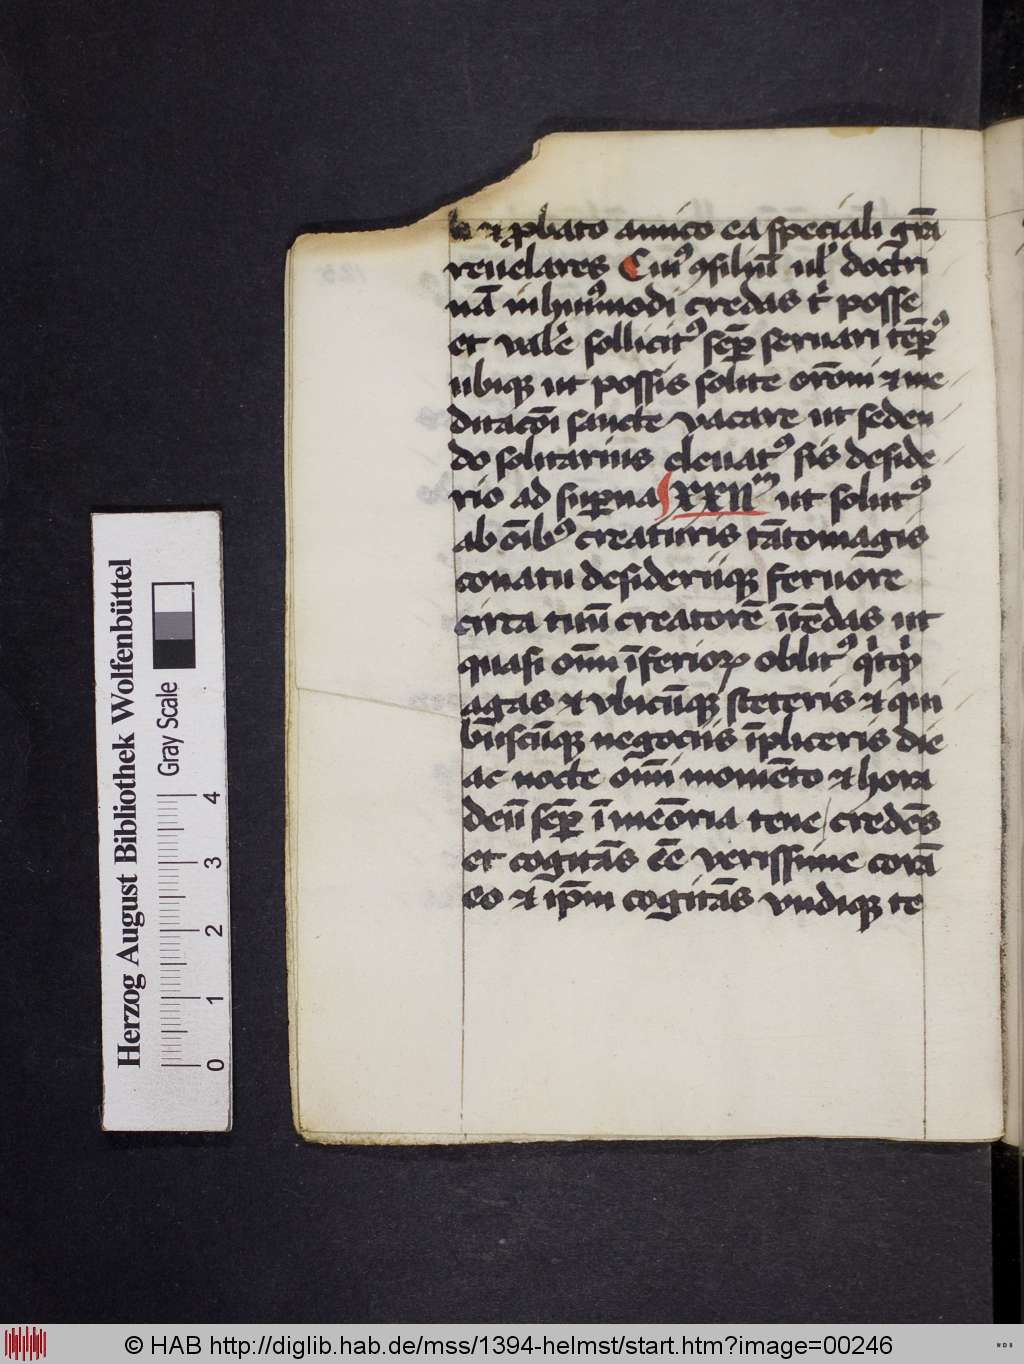 et ꝓbato amico ea speciali gr̄a
reuelares Cuiꝰ ꝯsiliū ul' doctri
nā in huiꝰmodi credas t' posse
et valē sollicitꝰ sēꝑ seruari tēꝑꝰ
ubiqꝫ ut possis solite orōni et me
ditacōi sancte vacare ut seden
do solitarius eleuatꝰ sis deside
rio ad suꝑna XXIIm ut solutꝰ
ab oīb' creaturis tātomagis
conatu desideriiqꝫ feruore
circa tuū creatorē ītēdas ut
quasi oīm īferioꝝ oblitꝰ
agas et vbicūqꝫ steteris et qui
buscūqꝫ negociis īpliceris die
ac nocte om̄i momēto et hora
deū sēꝑ ī memōria tene credēs
et cogitās te verissime corā
eo et ip̄m cogitās vndiqꝫ te
Herzog August Bibliothek Wolfenbüttel
Gray Scale
0 1 2 3 4
© HAB http://diglib.hab.de/mss/1394-helmst/start.htm?image=00246